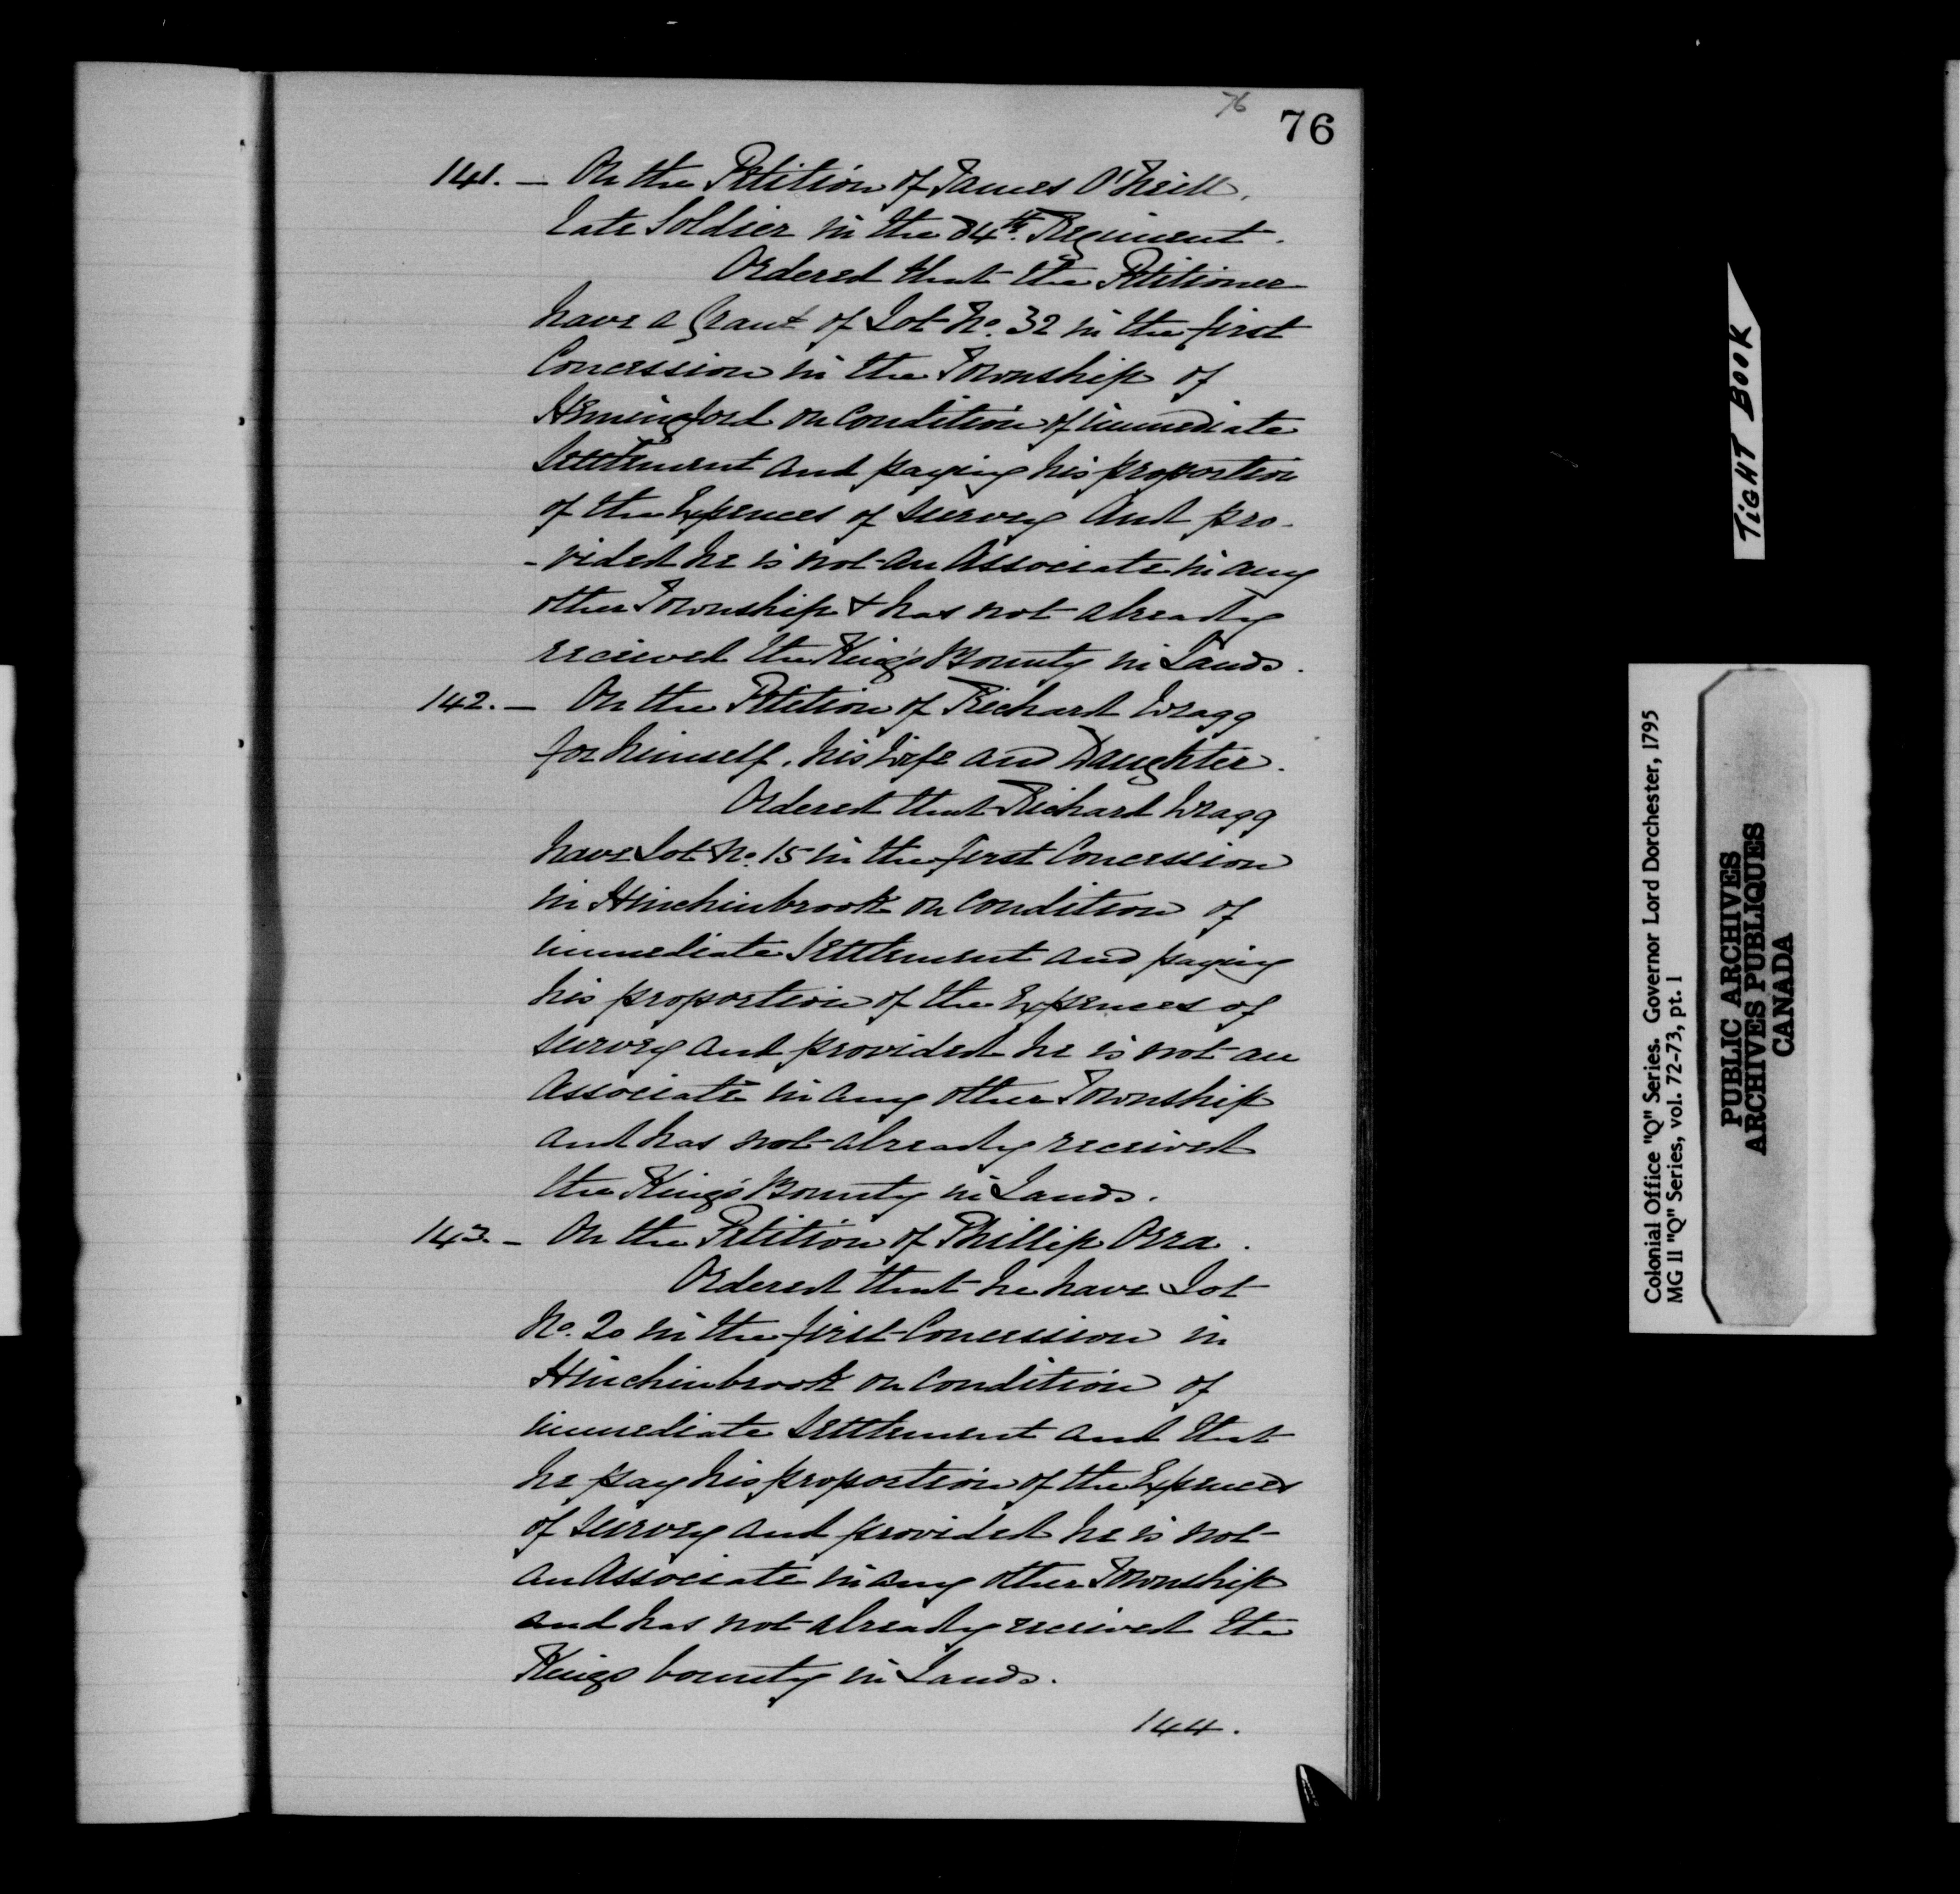 76
76
141. — On the Petition of James O'Neill,
late Soldier in the 84th. Regiment.
Ordered that the Petitioner
have a Grant of Lot No. 32 in the first
Concession in the Township of
Hemingford on Condition of immediate
Settlement and paying his proportion
of the Expences of Survey And pro-
-vided he is not an Associate in any
other Township & has not already
recieved the King's Bounty in Lands.
142. — On the Petition of Richard Wragg
for himself, his Wife and Daughter.
Ordered that Richard Wragg
have Lot No. 15 in the first Concession
in Hinchinbrook on Condition of
immediate Settlement and paying
his proportion of the Expences of
Survey and provided he is not an
Associate in any other Township
and has not already received
the King's Bounty in Lands.
143. — On the Petition of Phillip Orra.
Ordered that he have Lot
No. 20 in the first Concession in
Hinchinbrook on Condition of
immediate Settlement and that
he pay his proportion of the Expences
of Survey and provided he is not
an Associate in any other Township
and has not already received the
Kings bounty in Lands.
144.
TIGHT BOOK
Colonial Office "Q" Series. Governor Lord Dorchester, 1795
MG 11 "Q" Series, vol. 72-73, pt. 1
PUBLIC ARCHIVES
ARCHIVES PUBLIQUES
CANADA